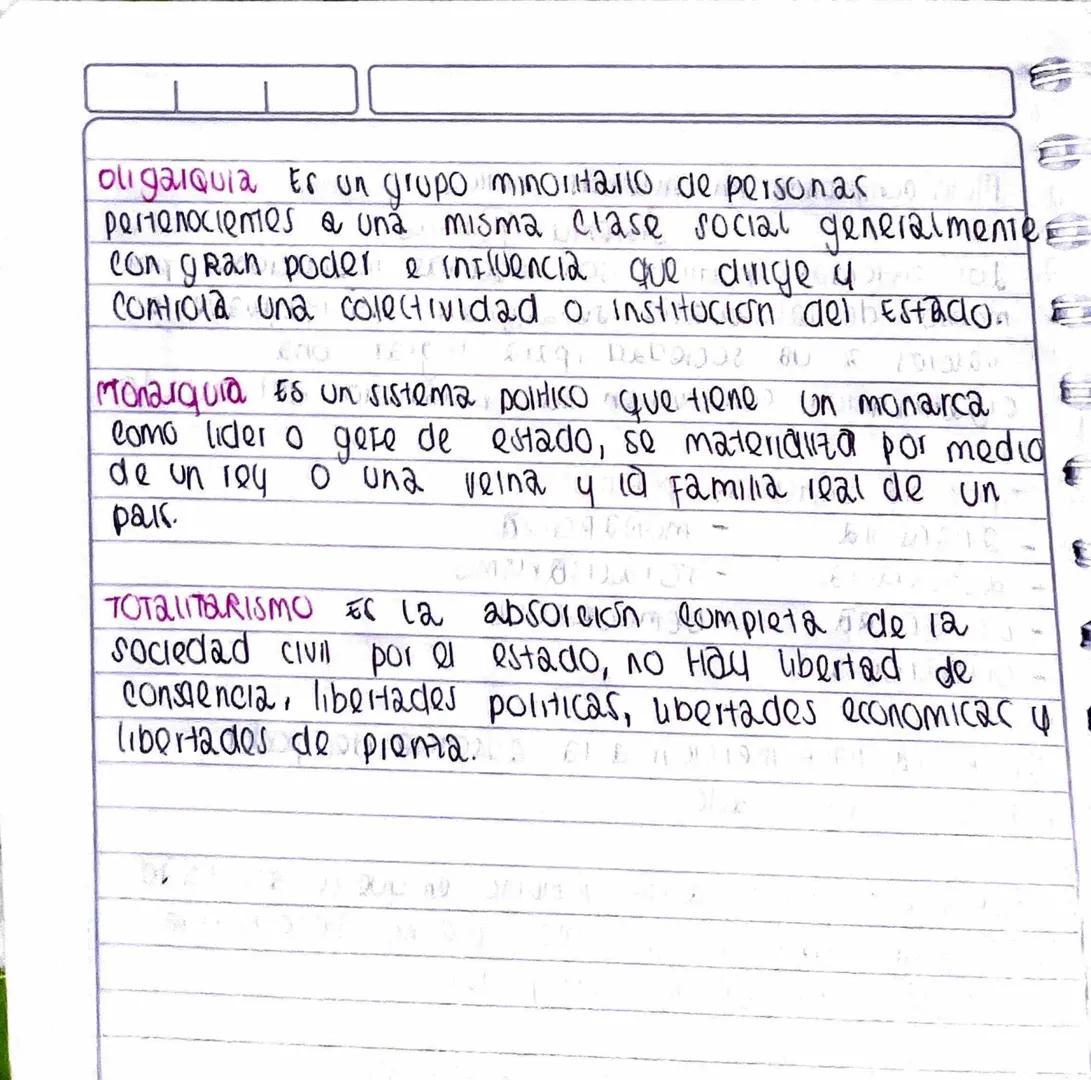 Oligarquia Es un grupo minoritario de personas
pertenocientes a una misma clase social generalmente
con gran poder e influencia que dirige y
controla una colectividad o institucion del Estado.
Monarquia ES un sistema politico que tiene un monarca
como lider o gefe de estado, se materializa por medio
de un rey o una reina y la familia real de un
pais.
TOTALITARISMO Es la absorción completa de la
sociedad civil por el estado, no Hay libertad de
consiencia, libertades politicas, libertades economicas y
libertades de prensa.